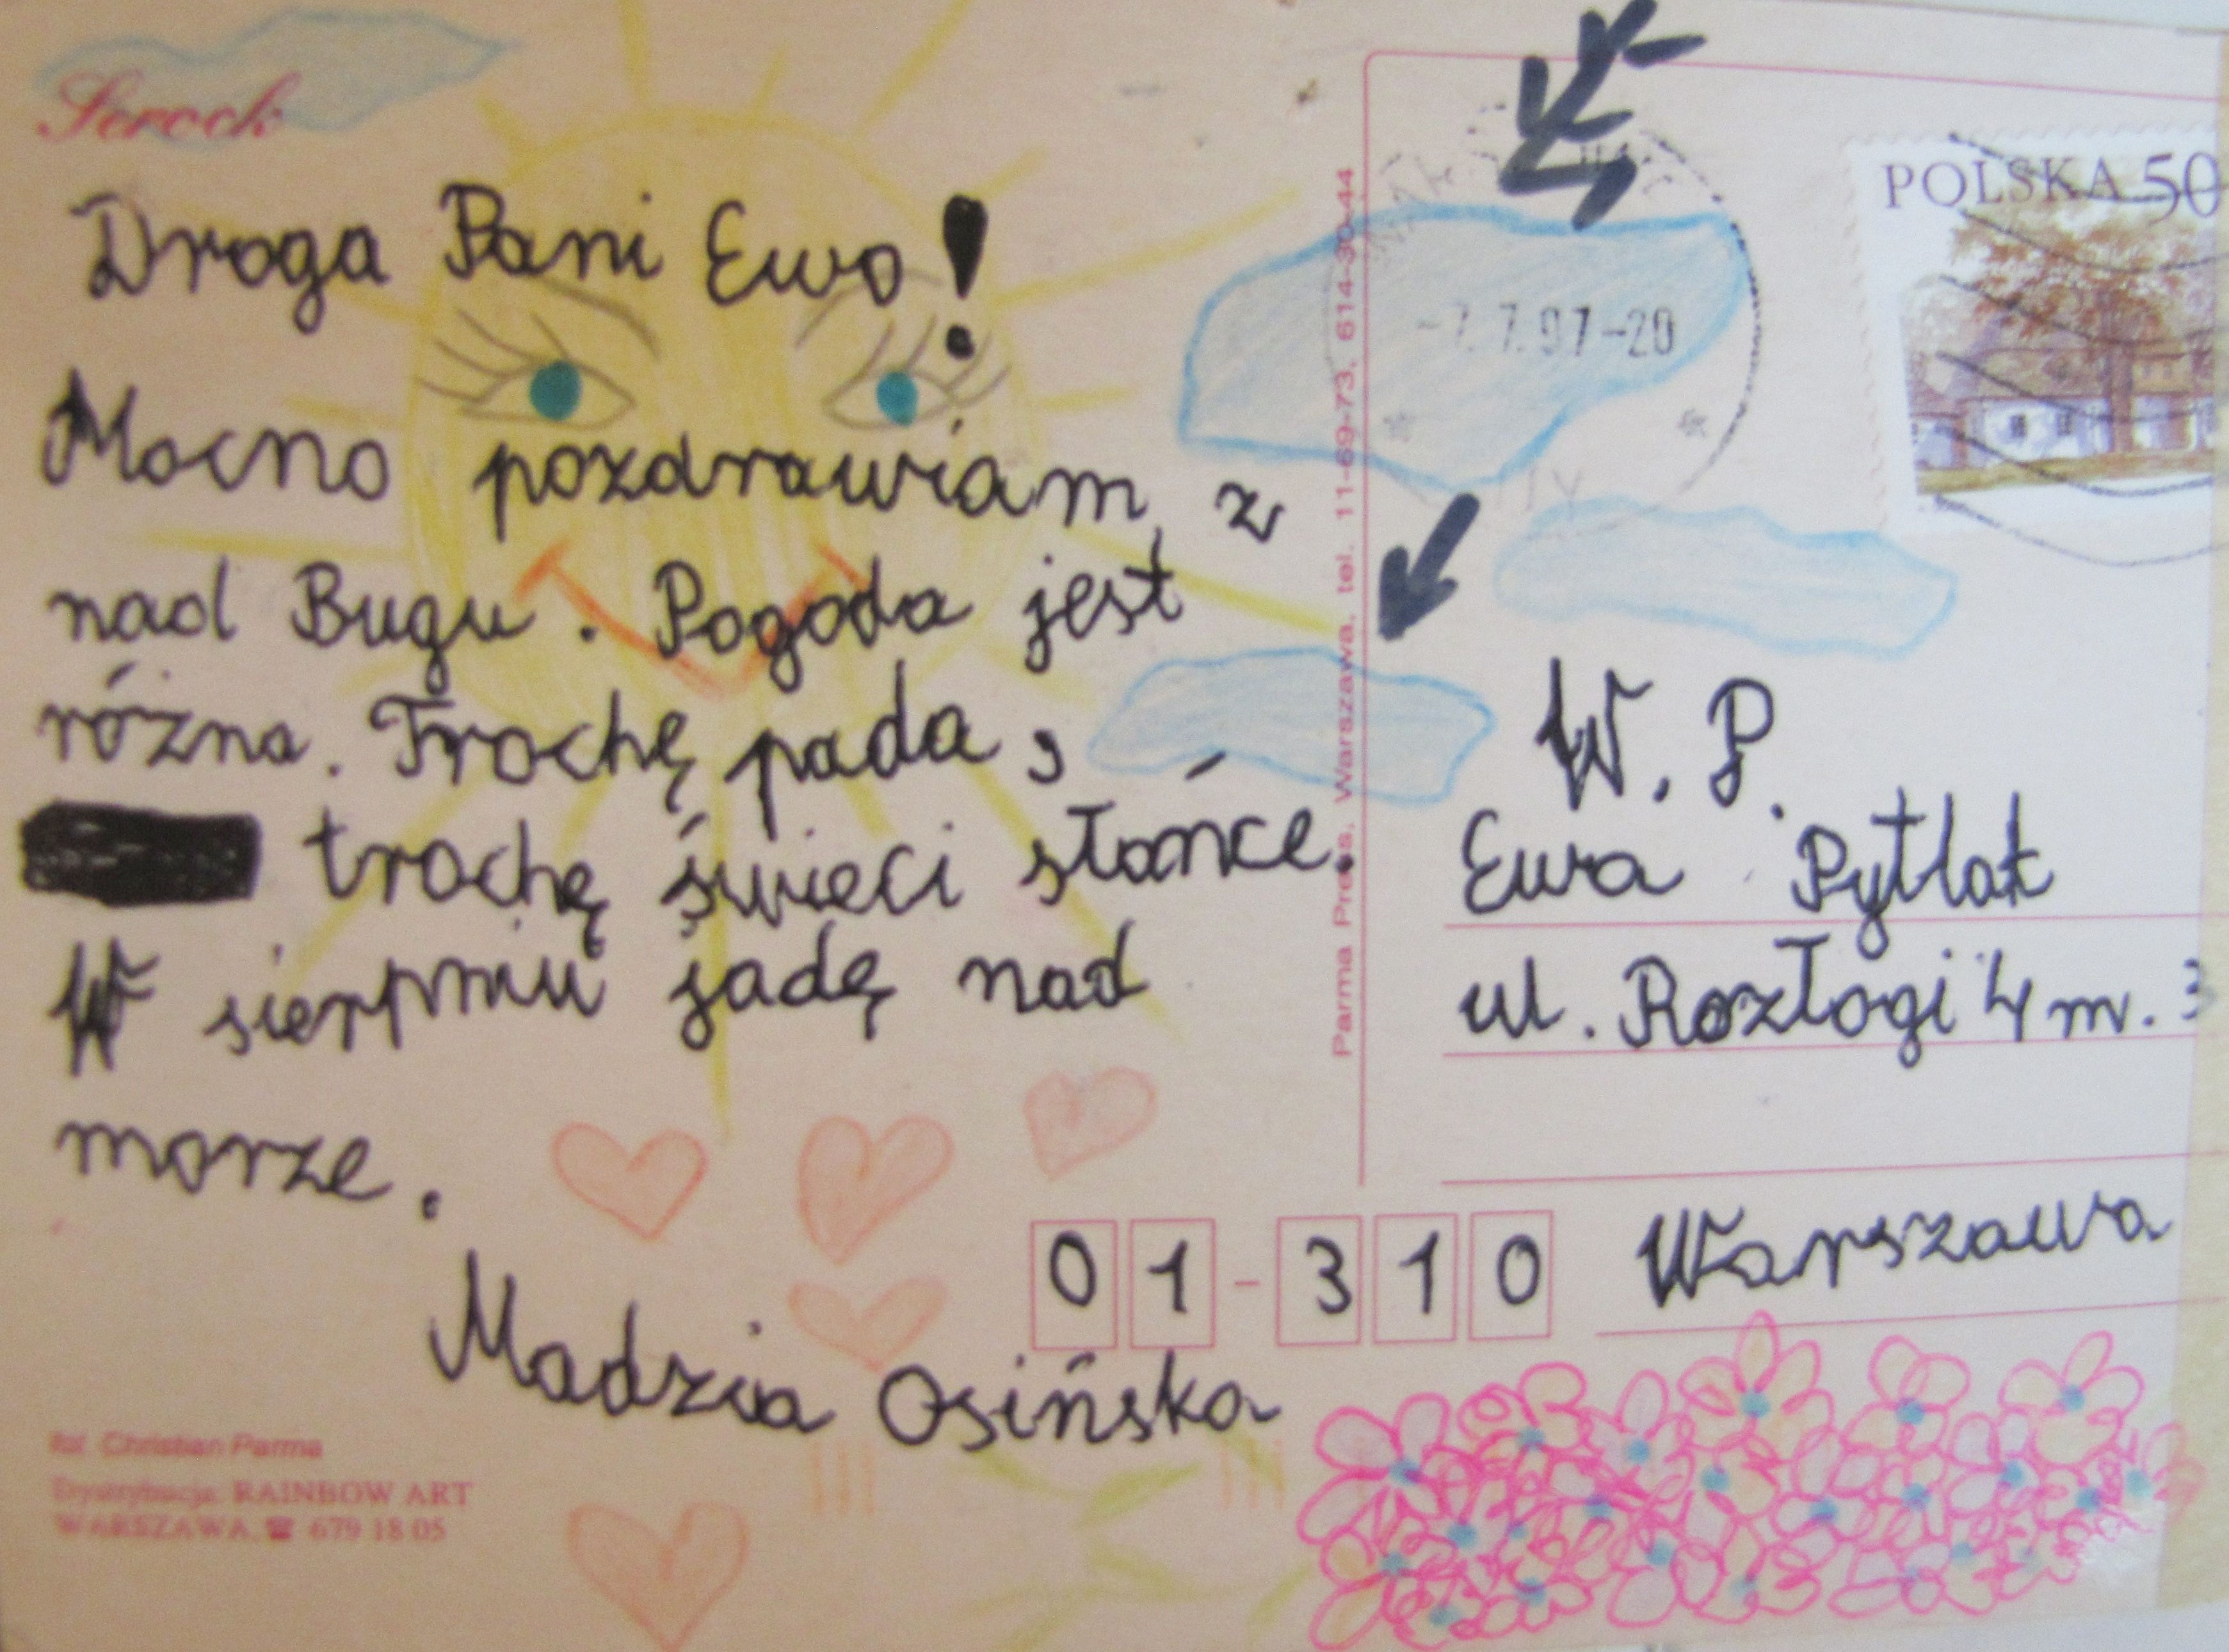 Serock
Droga Pani Ewo!
Mocno pozdrawiam z
nad Bugu. Pogoda jest
różna. Trochę pada,
trochę świeci słońce.
W sierpniu jadę nad
morze.
Madzia Osińska
fot. Christian Parma
Dystrybucja: RAINBOW ART
WARSZAWA ☎ 679 18 05
Parma Press, Warszawa, tel. 11-69-73, 614-30-44
-7.7.97-20
POLSKA 50
W. P.
Ewa Pytlak
ul. Rozłogi 4 m. 3
01-310 Warszawa